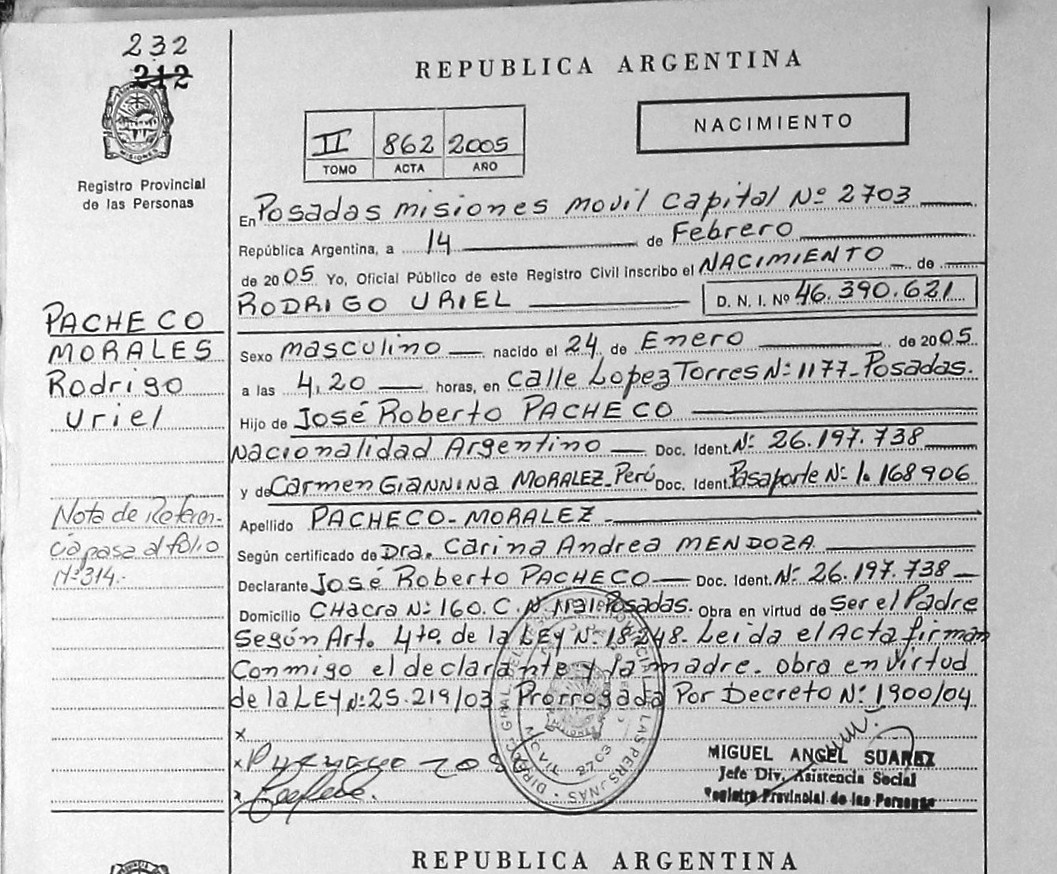 232
212
MISIONES
Registro Provincial
de las Personas
REPUBLICA ARGENTINA
II 862 2005
TOMO ACTA AÑO
NACIMIENTO
En Posadas misiones movil capital Nº 2703
República Argentina, a 14 de Febrero
de 2005 Yo, Oficial Público de este Registro Civil inscribo el NACIMIENTO de
RODRIGO URIEL D. N. I. Nº 46.390.621
Sexo masculino nacido el 24 de Enero de 2005
a las 4,20 horas, en calle Lopez Torres Nº 1177-Posadas.
Hijo de José Roberto PACHECO
Nacionalidad Argentino Doc. Ident. Nº 26.197.738
y de Carmen GIANNINA MORALEZ-Perú Doc. Ident. Pasaporte Nº 1.168906
Apellido PACHECO-MORALEZ-
Según certificado de Dra. Carina Andrea MENDOZA
Declarante José Roberto PACHECO Doc. Ident. Nº 26.197.738
Domicilio CHacra Nº 160. C. Nº 1131-Posadas. Obra en virtud de Ser el Padre
Según Art. 4to. de la LEY Nº 18248. Leida el Acta firman
Conmigo el declarante y la madre. obra en virtud
de la LEY Nº 25.219/03 Prorrogada Por Decreto Nº 1900/04
PACHECO
MORALES
Rodrigo
Uriel
Nota de Referen-
cia pasa al folio
Nº 314.-
x
x
x
2703
MIGUEL ANGEL SUAREZ
Jefe Div. Asistencia Social
Registro Provincial de las Personas
REPUBLICA ARGENTINA